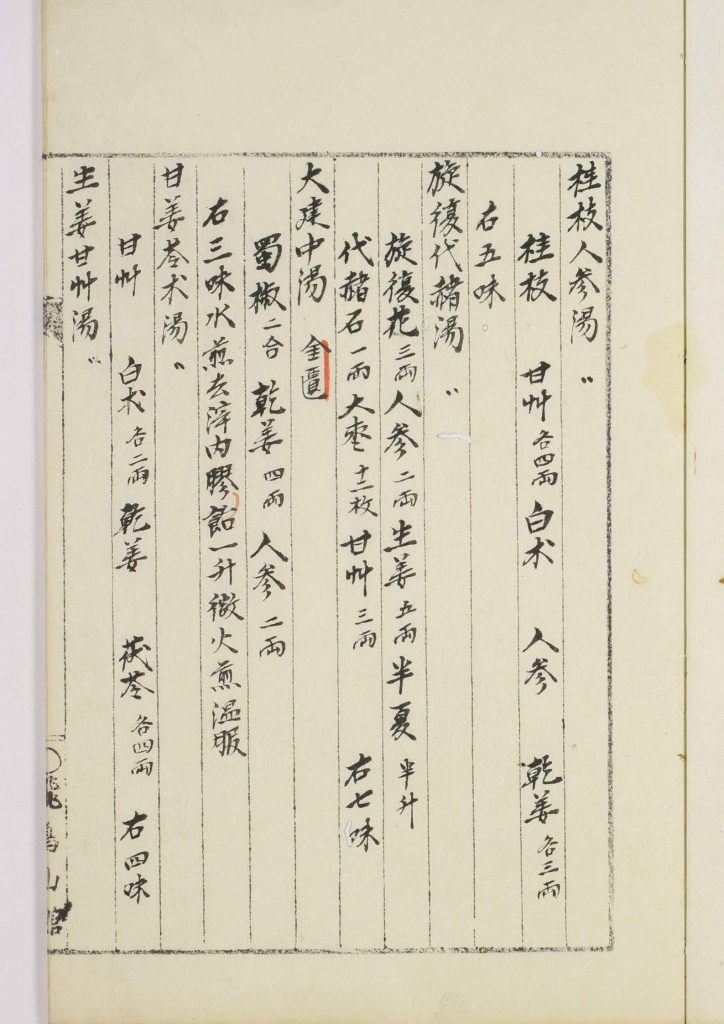 桂枝人参湯 〃
桂枝 甘艸 各四兩 白朮 人参 乾姜 各三兩
右五味
旋復代赭湯 〃
旋復花 三兩 人参 二兩 生姜 五兩 半夏 半升
代赭石 一兩 大枣 十二枚 甘艸 三兩 右七味
大建中湯 金匱
蜀椒 二合 乾姜 四兩 人参 二兩
右三味水煎去滓内膠飴一升微火煎温服
甘姜苓朮湯 〃
甘艸 白朮 各二兩 乾姜 茯苓 各四兩 右四味
生姜甘艸湯 〃